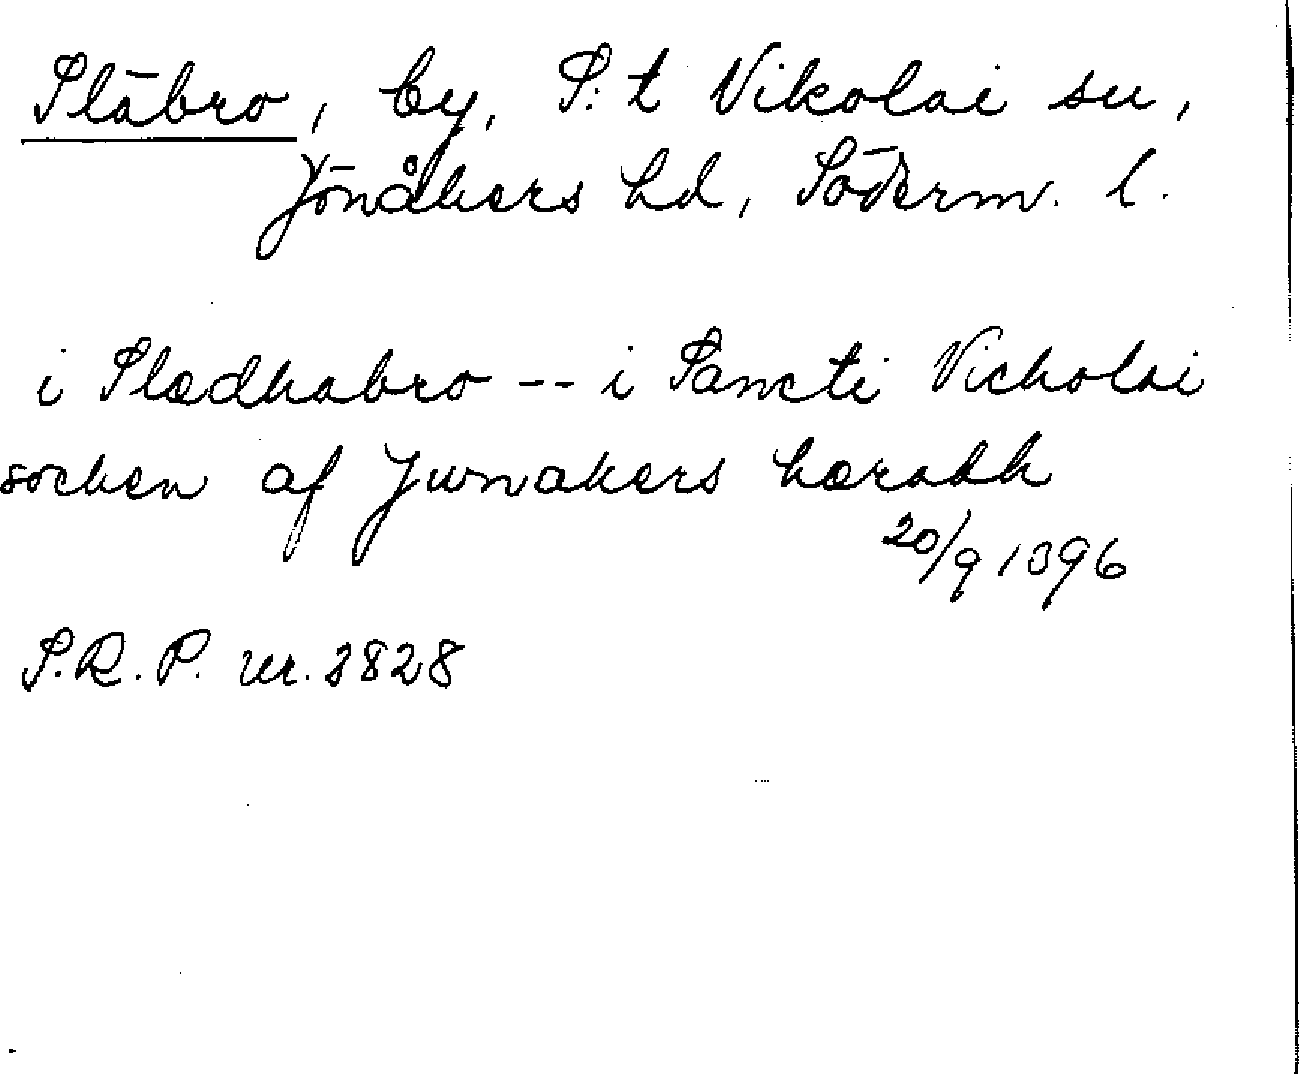 Släbro, by, S:t Nikolai sn,
Jönåkers hd, Söderm. l.
i Slædhabro -- i Sancti Nicholai
socken af Junakers hæradh
20/9 1396
S.R.P. nr. 2828